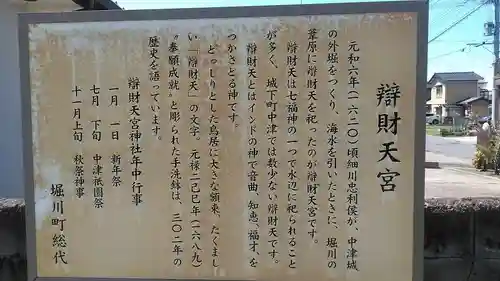 辯財天宮
元和六年(一六二〇)頃細川忠利侯が、中津城
の外堀をつくり、海水を引いたときに、堀川の
葦原に辯財天を祀ったのが辯財天宮です。
辯財天は七福神の一つで水辺に祀られること
が多く、城下町中津では数少ない辯財天です。
辯財天とはインドの神で音曲、知恵、福才、を
つかさどる神です。
どっしりとした鳥居に大きな額束、たくまし
い「辯財天」の文字、元禄二己巳年(一六八九)
"奉願成就"と彫られた手洗鉢は、三〇二年の
歴史を語っています。
辯財天宮神社年中行事
一月 一日 新年祭
七月 下旬 中津祇園祭
十一月上旬 秋祭神事
堀川町総代